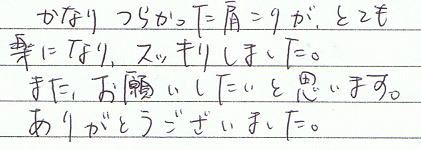 かなりつらかった肩こりが、とても
楽になり、スッキリしました。
また、お願いしたいと思います。
ありがとうございました。